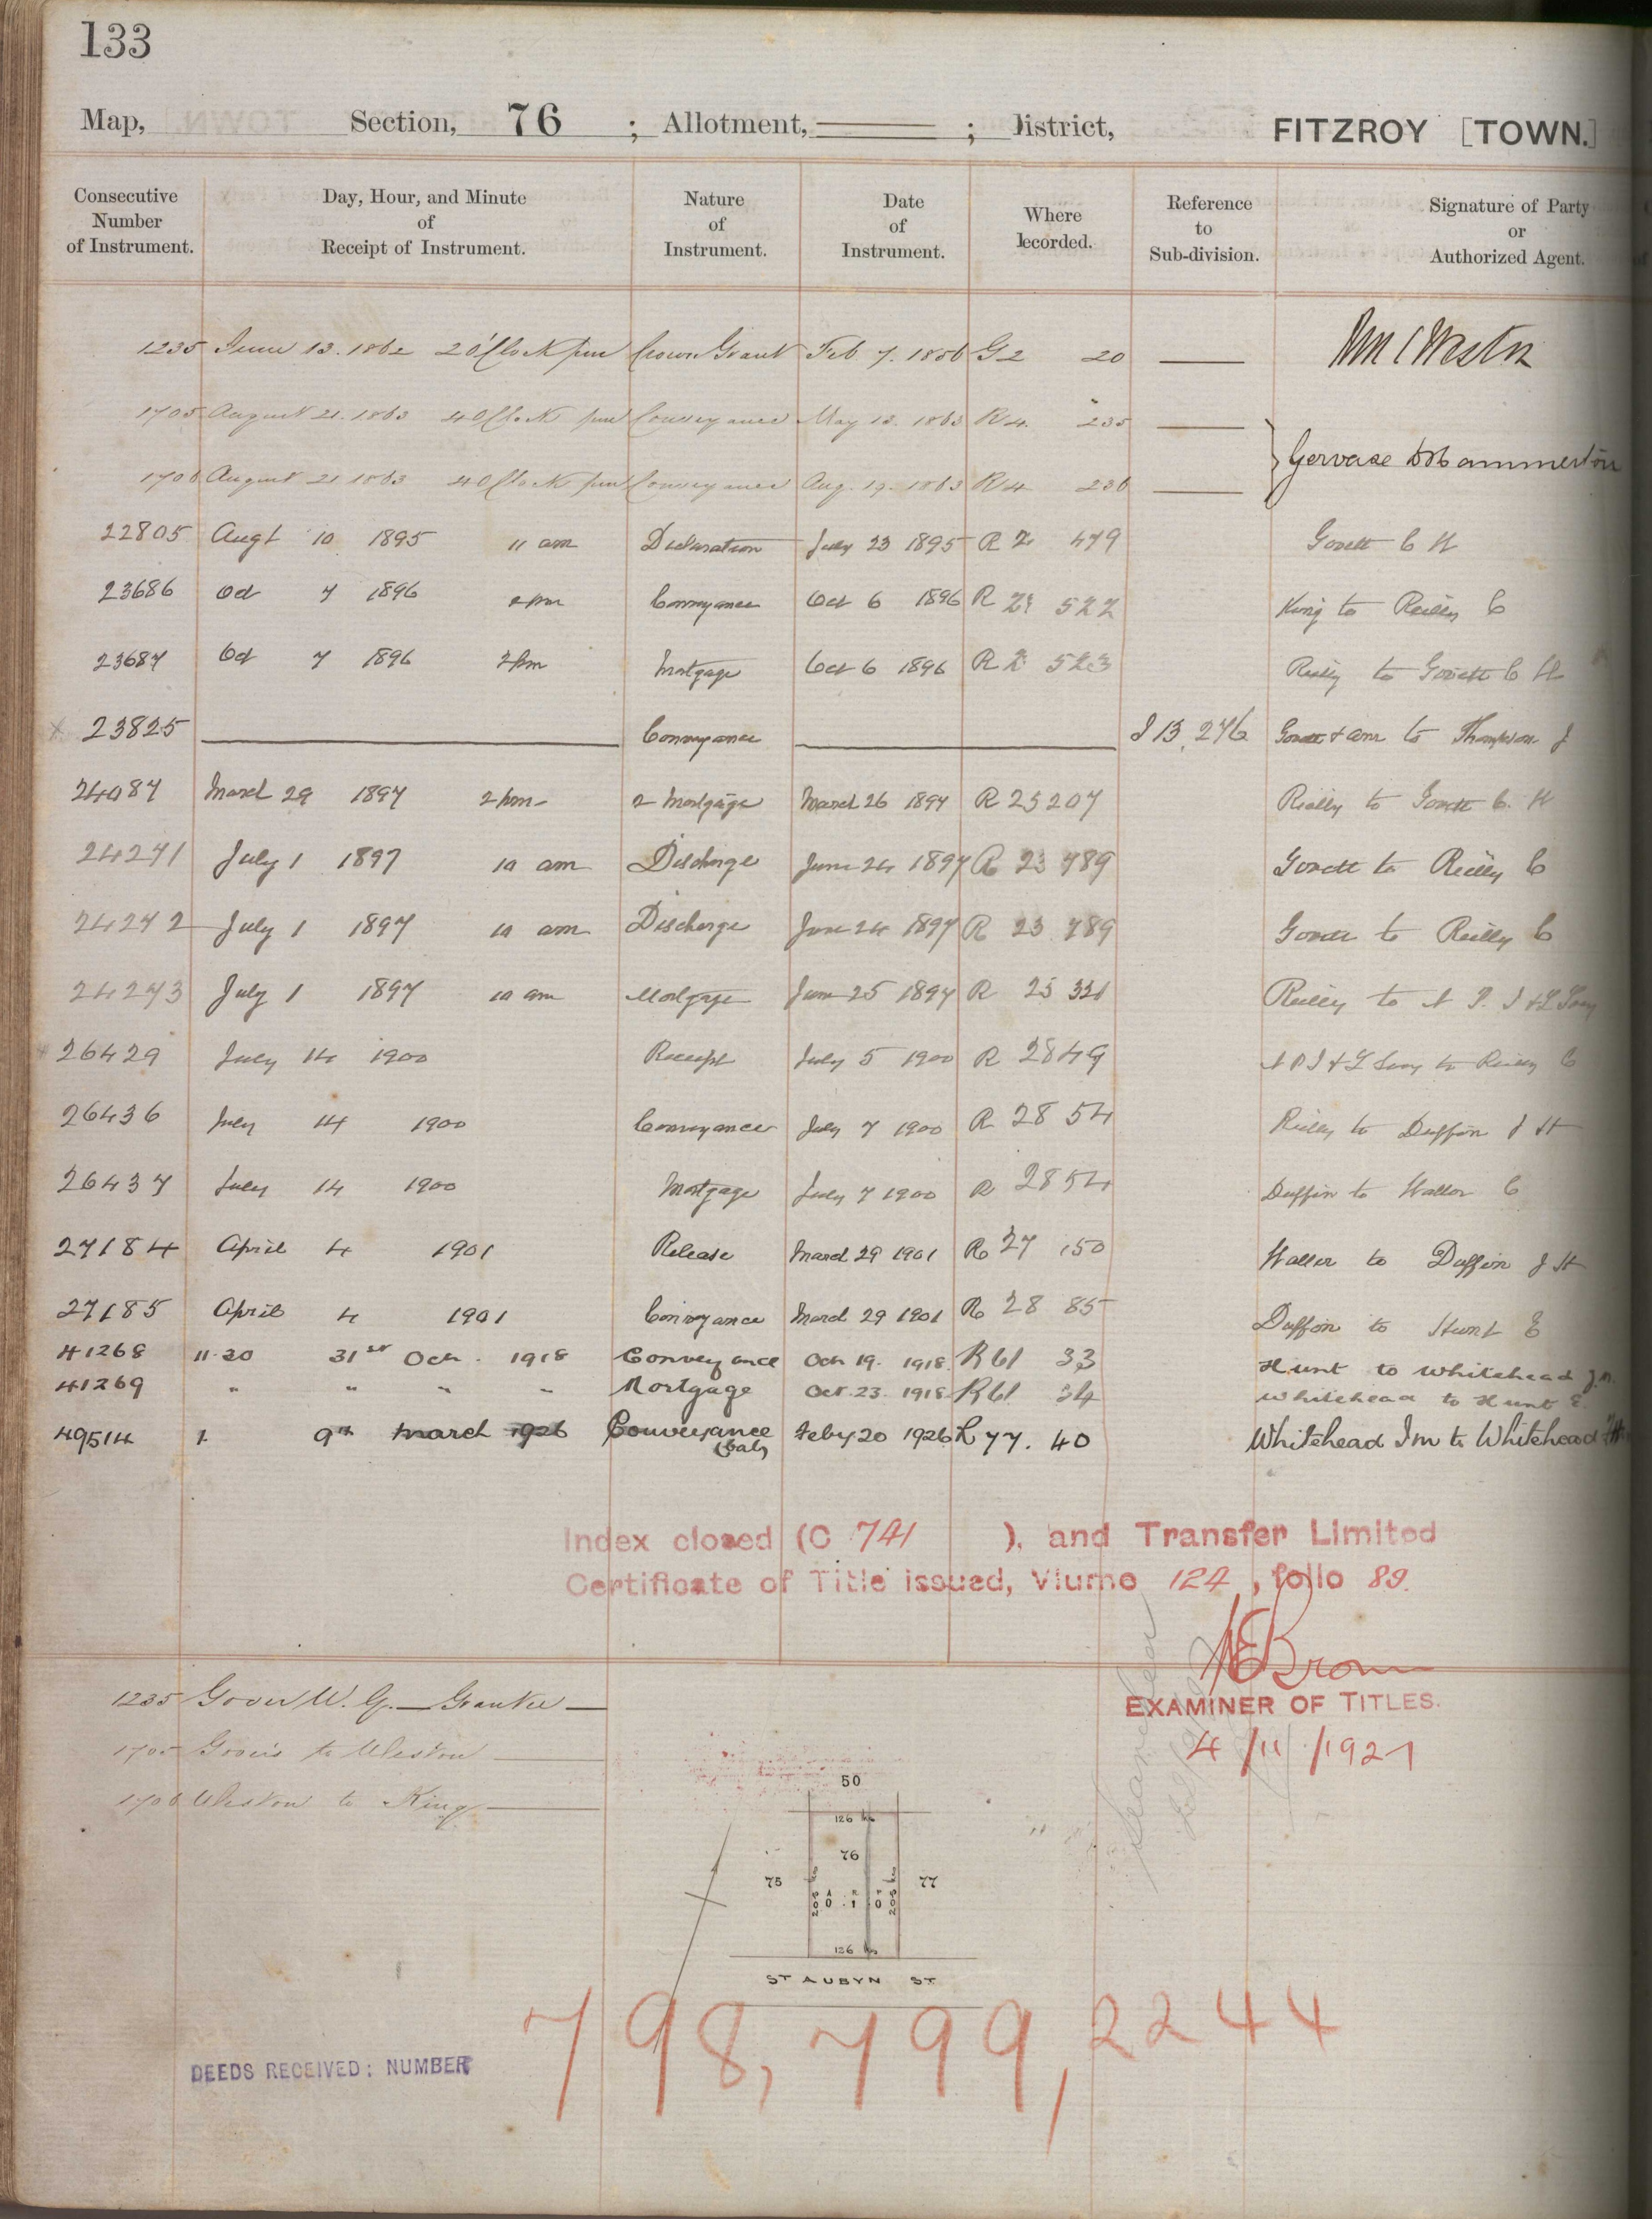 133
Map, Section, 76 ; Allotment, ; District, FITZROY [TOWN.]
Consecutive Number of Instrument. Day, Hour, and Minute of Receipt of Instrument. Nature of Instrument. Date of Instrument. Where Recorded. Reference to Sub-division. Signature of Party or Authorized Agent.
1235 June 13. 1862 2 O'Clock pm Crown Grant Feb 7. 1856 G2 20
1705 August 21. 1863 4 O'Clock pm Conveyance May 13. 1863 R4. 235
1706 August 21 1863 4 O'Clock pm Conveyance Aug. 19. 1863 R4 236
22805 Augt 10 1895 11 am Declaration July 23 1895 R 479 Govett C H
23686 Oct 7 1896 2 pm Conveyance Oct 6 1896 R 522 King to Reilly C
23687 Oct 7 1896 2 pm Mortgage Oct 6 1896 R 523 Reilly to Govett C H
23825 Conveyance I 13, 276 Govett & anr to Thompson J
24087 March 29 1897 2 pm 2 Mortgage March 26 1897 R 25 207 Reilly to Govett C. H
24271 July 1 1897 10 am Discharge June 24 1897 R 23 789 Govett to Reilly C
24272 July 1 1897 10 am Discharge June 24 1897 R 23 789 Govett to Reilly C
24273 July 1 1897 10 am Mortgage June 25 1897 R 25 331 Reilly to
26429 July 14 1900 Receipt July 5 1900 R 28 49 to Reilly C
26436 July 14 1900 Conveyance July 7 1900 R 28 54 Reilly to Duffin J H
26437 July 14 1900 Mortgage July 7 1900 R 28 54 Duffin to Waller C
27184 April 4 1901 Release March 29 1901 R 27 150 Waller to Duffin J H
27185 April 4 1901 Conveyance March 29 1901 R 28 85 Duffin to Hunt E
41268 11.20 31st Oct. 1918 Conveyance Oct 19. 1918. R61 33 Hunt to Whitehead J.M.
41269 " " " " Mortgage Oct. 23. 1918 R61. 34 Whitehead to Hunt E.
49514 1. 9th March 1926 Conveyance Feby 20 1926 R 77. 40 Whitehead J M to Whitehead
(bal)
Index closed (C 741 ), and Transfer Limited
Certificate of Title issued, Vlume 124, folio 89.
Brown
EXAMINER OF TITLES.
4/11/1927
1235 Gover W. G. — Grantee
1705 Govers to Weston
1706 Weston to King
50
126 lks
76
75 77
208 lks 208 lks
A R P
0 . 1 . 0
126 lks
ST AUBYN ST.
DEEDS RECEIVED: NUMBER 798, 799, 2244